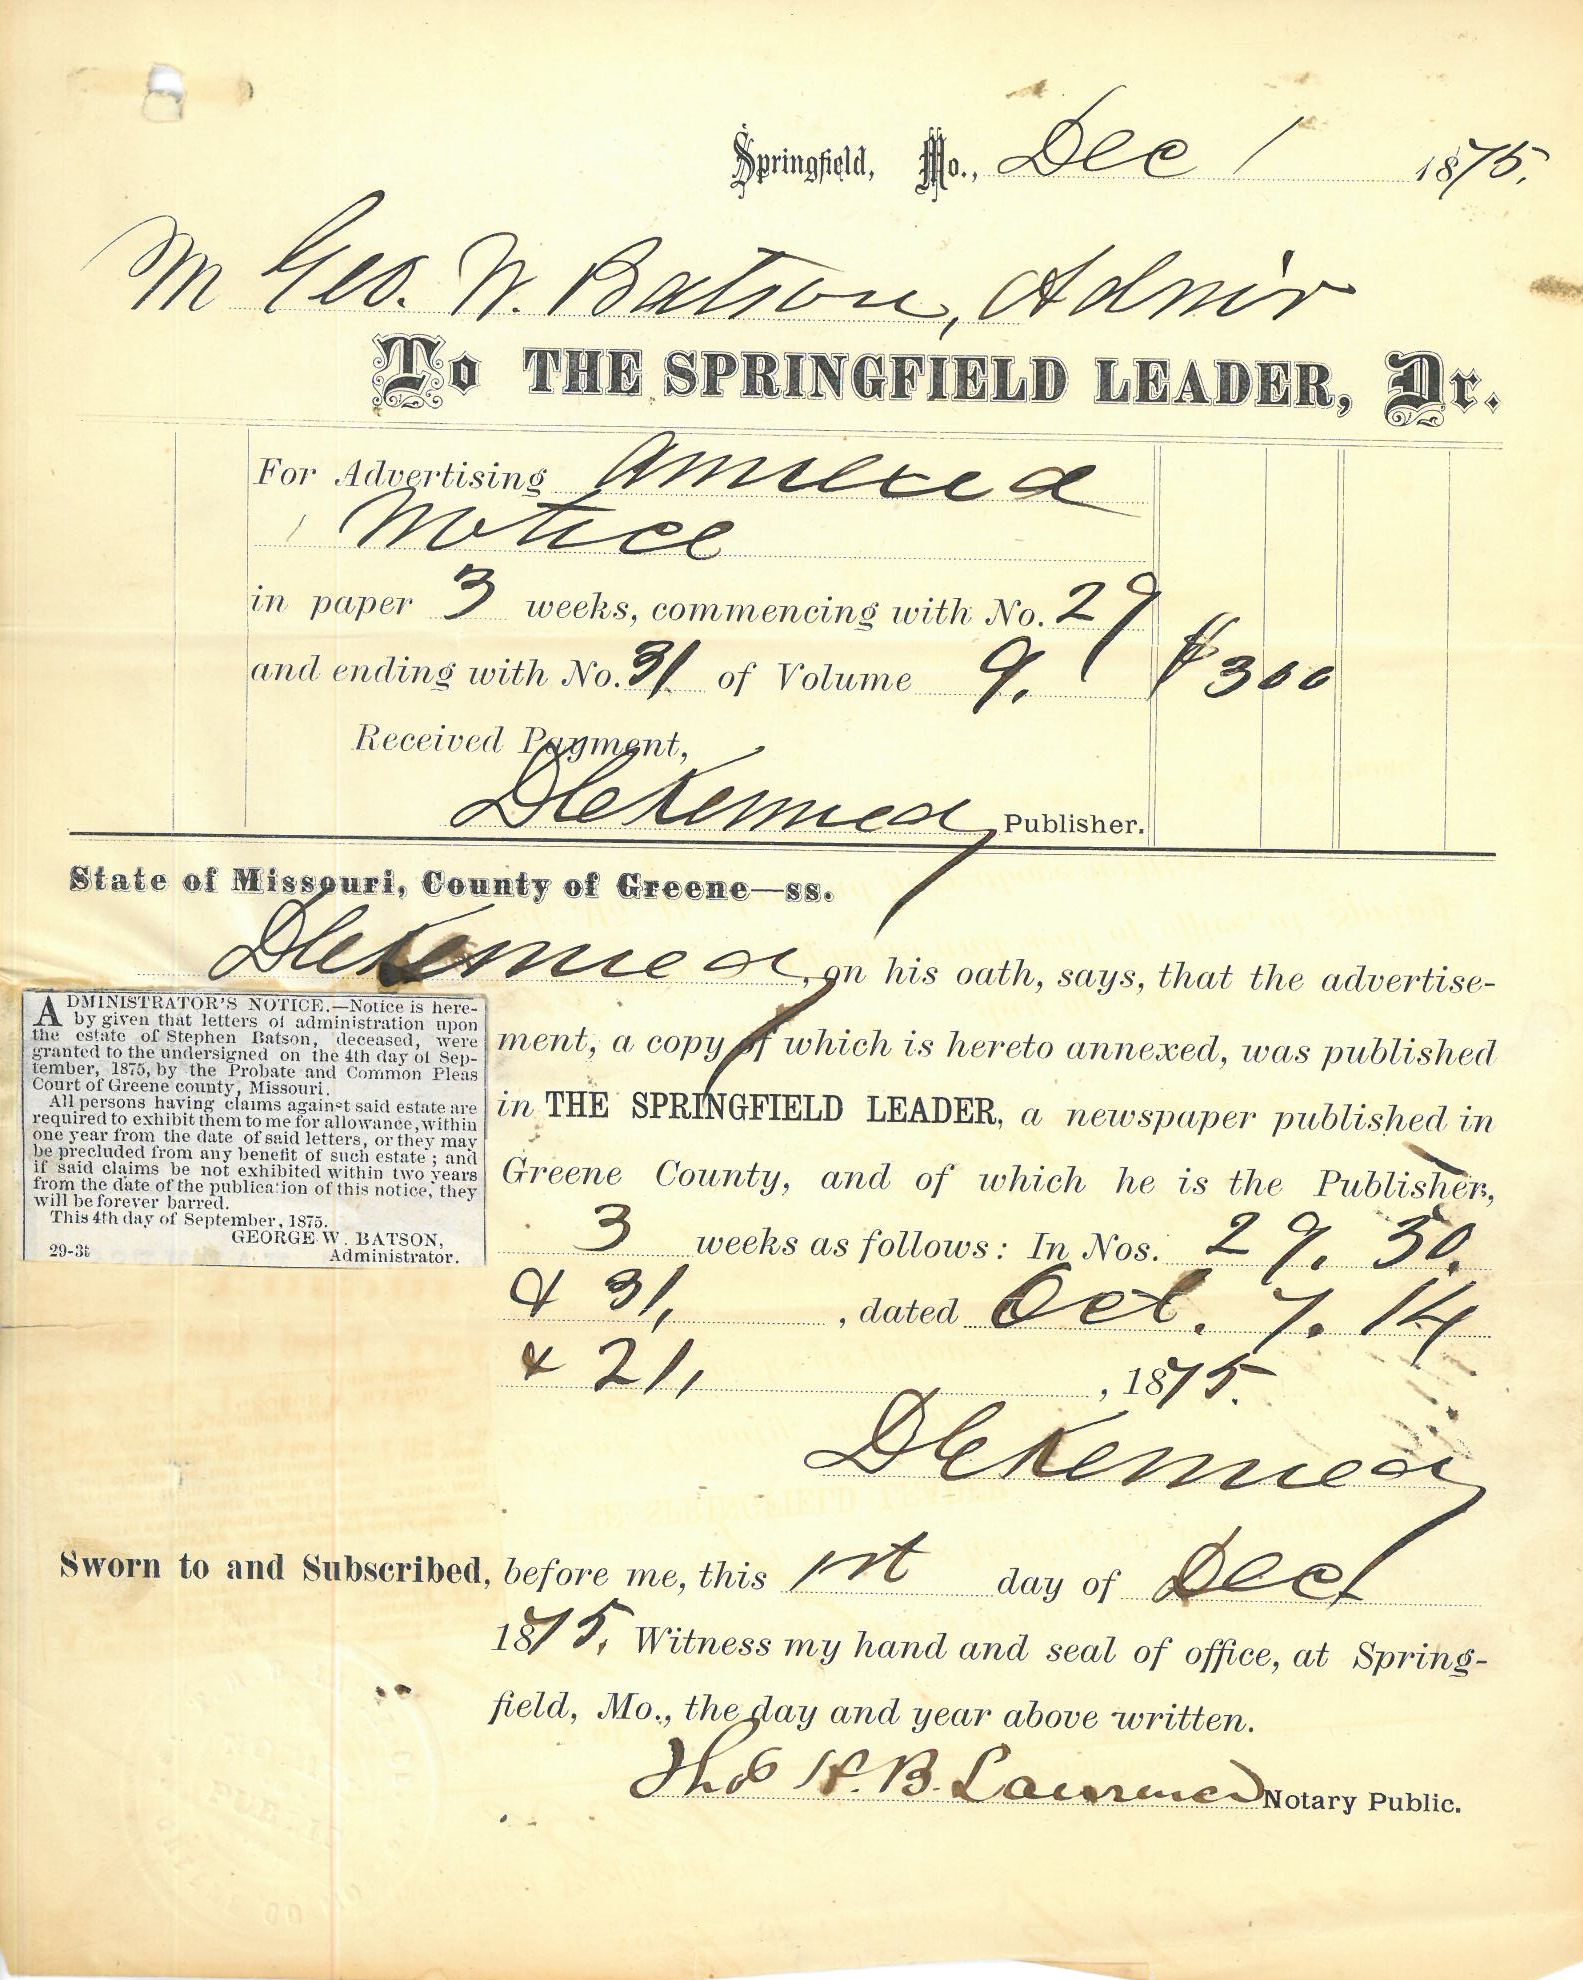 Springfield, Mo., Dec 1 1875.
M Geo. W. Batson, Admir
To THE SPRINGFIELD LEADER, Dr.
For Advertising annexed
Notice
in paper 3 weeks, commencing with No. 29
and ending with No. 31 of Volume 9. $3 00
Received Payment,
D C Kennedy Publisher.
State of Missouri, County of Greene—ss.
D C Kennedy, on his oath, says, that the advertise-
ment, a copy of which is hereto annexed, was published
in THE SPRINGFIELD LEADER, a newspaper published in
Greene County, and of which he is the Publisher,
3 weeks as follows: In Nos. 29. 30.
& 31, , dated Oct. 7. 14
& 21, , 1875.
D C Kennedy
ADMINISTRATOR'S NOTICE.—Notice is here-
by given that letters of administration upon
the estate of Stephen Batson, deceased, were
granted to the undersigned on the 4th day of Sep-
tember, 1875, by the Probate and Common Pleas
Court of Greene county, Missouri.
All persons having claims against said estate are
required to exhibit them to me for allowance, within
one year from the date of said letters, or they may
be precluded from any benefit of such estate; and
if said claims be not exhibited within two years
from the date of the publication of this notice, they
will be forever barred.
This 4th day of September, 1875.
GEORGE W. BATSON,
29-3t Administrator.
Sworn to and Subscribed, before me, this 1st day of Dec
1875. Witness my hand and seal of office, at Spring-
field, Mo., the day and year above written.
Thos H. B. Lawrence Notary Public.